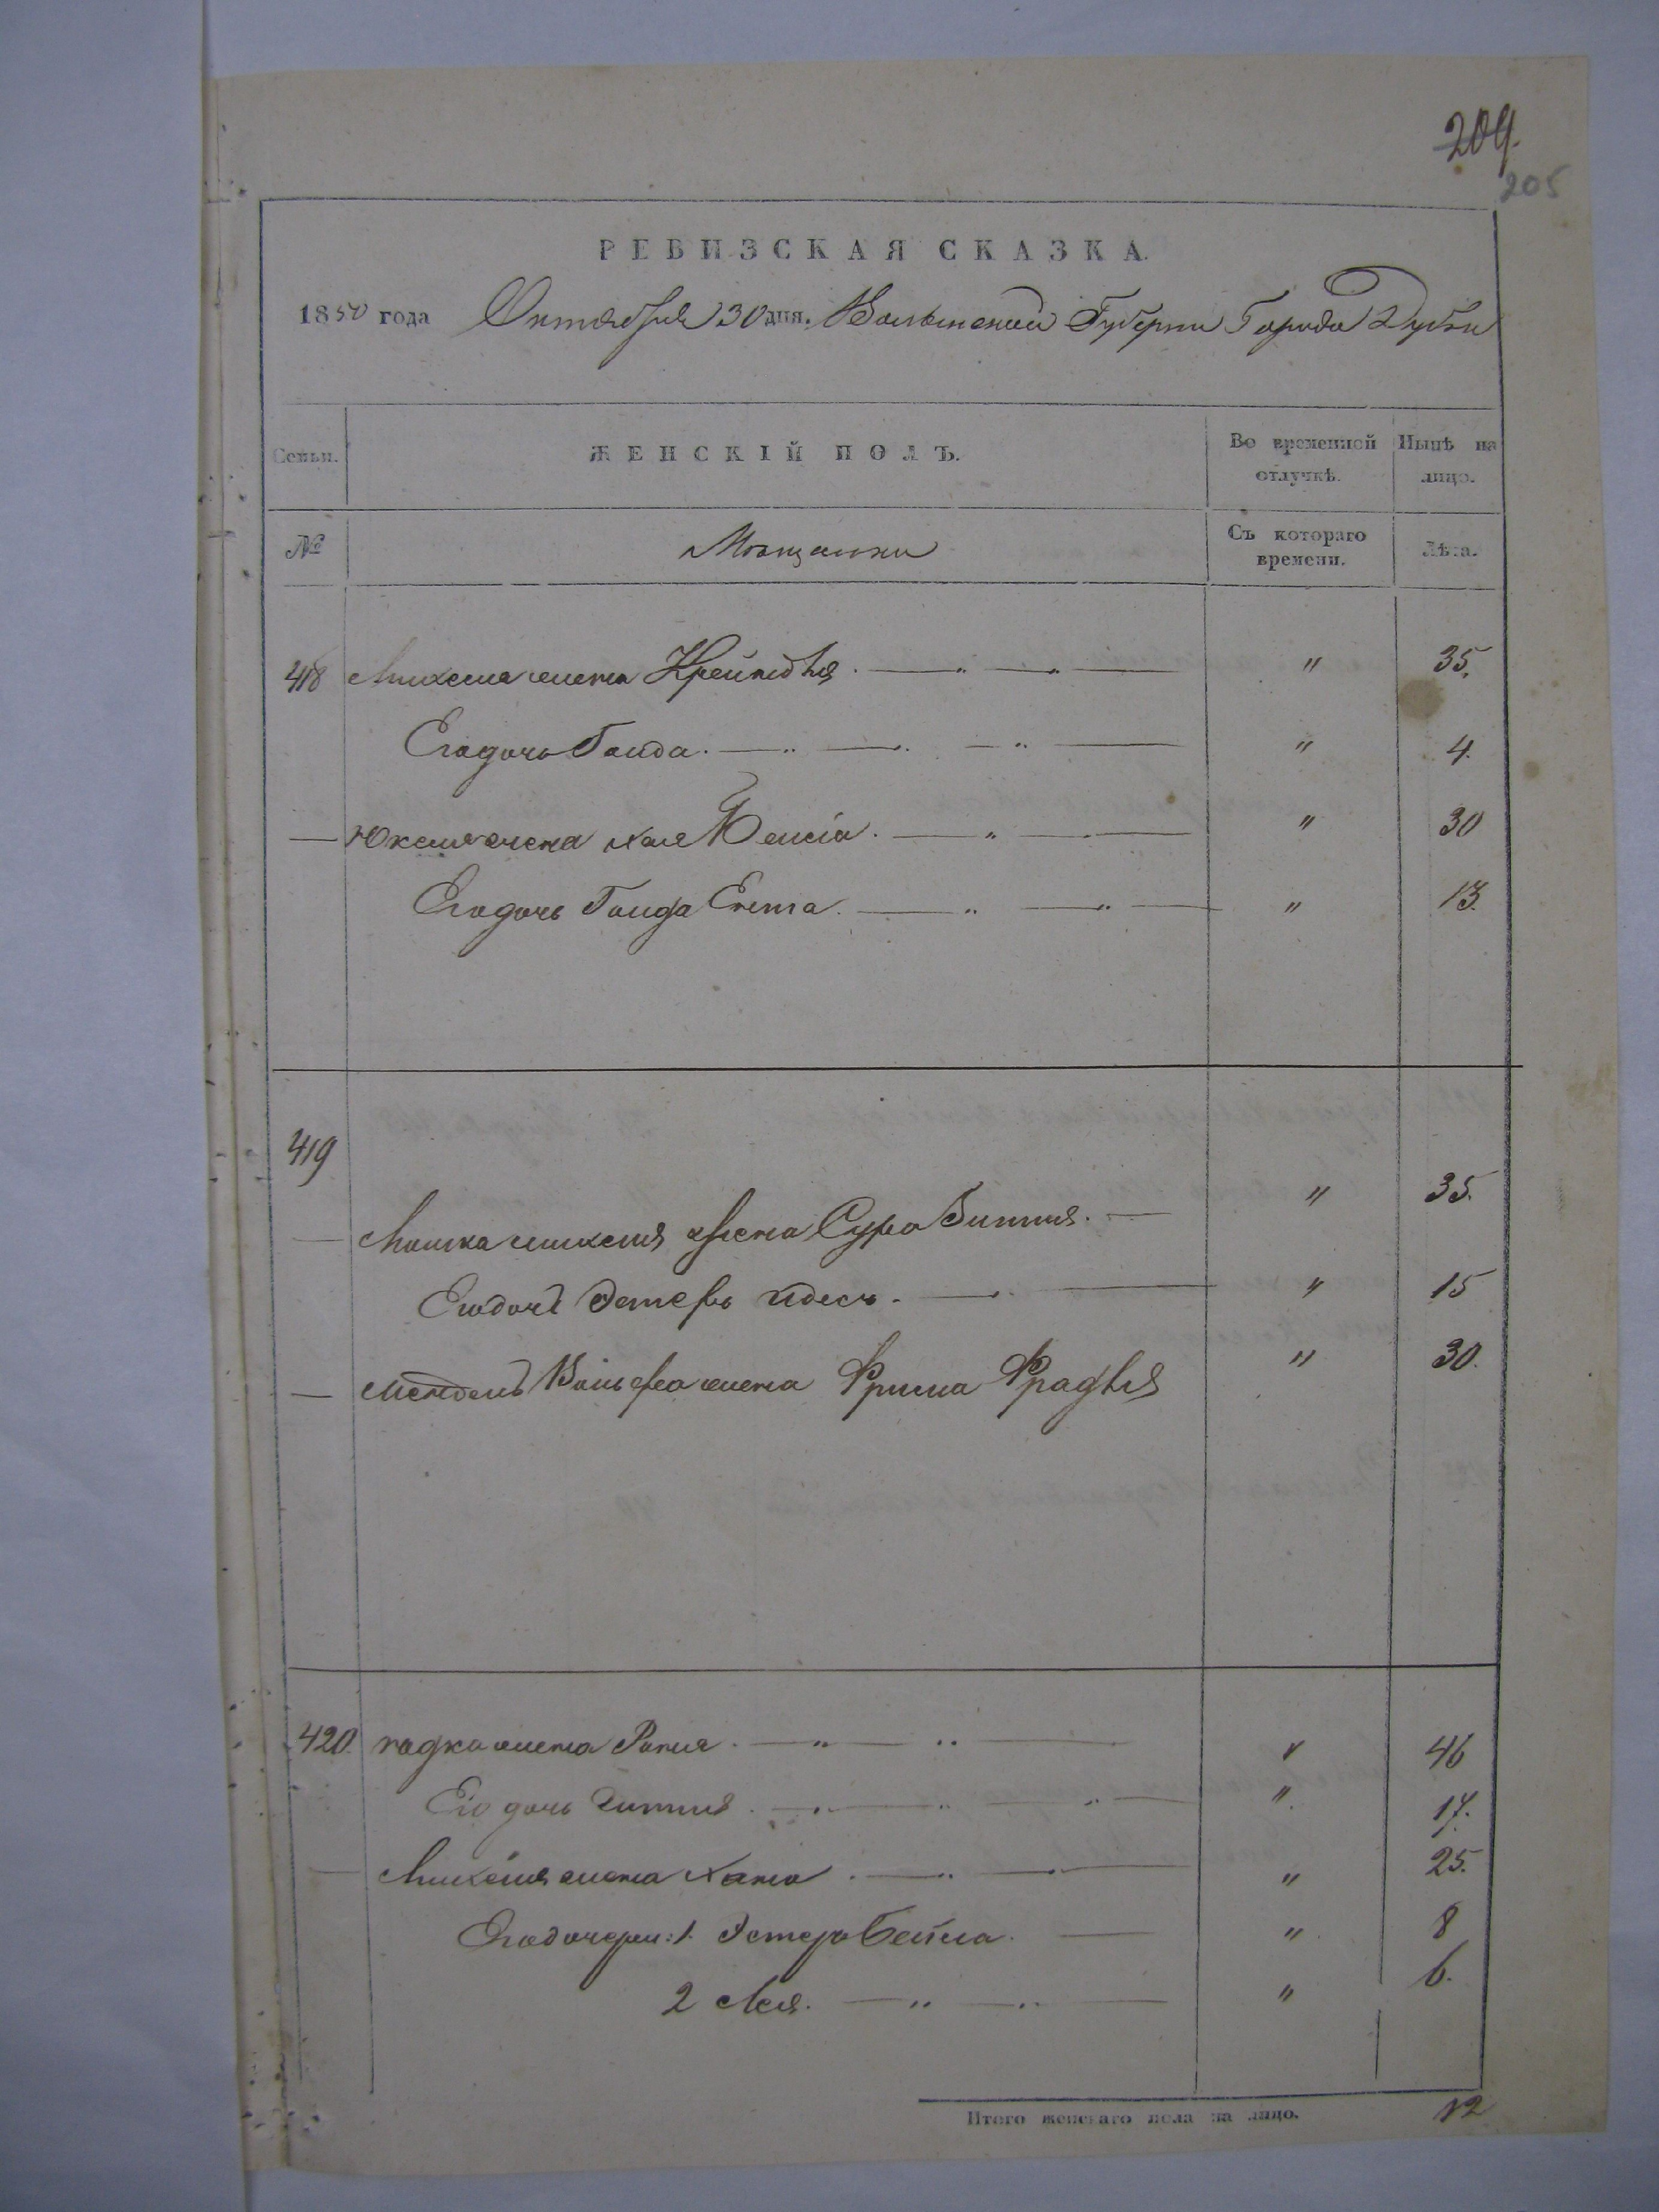 204.
205
РЕВИЗСКАЯ СКАЗКА.
1850 года Октября 30 дня. Волынской Губерни Города Дубна
Семьи. ЖЕНСКІЙ ПОЛЪ. Во временной отлучкѣ. Нынѣ на лицо.
№ Мѣщанки Съ котораго времени. Лѣта.
418 жена Крейндѣля. — " — " — " 35.
Егодочь Голда. — " — " — " — " 4.
— жена хая — " — " 30
Егодочь Голда Ента. — " — " — " 13.
419
— Мошка жена Сура Гитля. — " 35.
Егодочь Эстеръ Идесъ. — " 15
— Мендель Вольфа жена Фрима Фрадѣля " 30.
420. жена Рахля. — " — " — " 46
Его дочь Гитля. — " — " — " — " 17.
— жена Хана. — " — " — " 25.
Егодочери: 1. Эстеръ Бейла. — " 8
2 Лея. — " — " — " 6.
Итого женскаго пола на лицо. 12